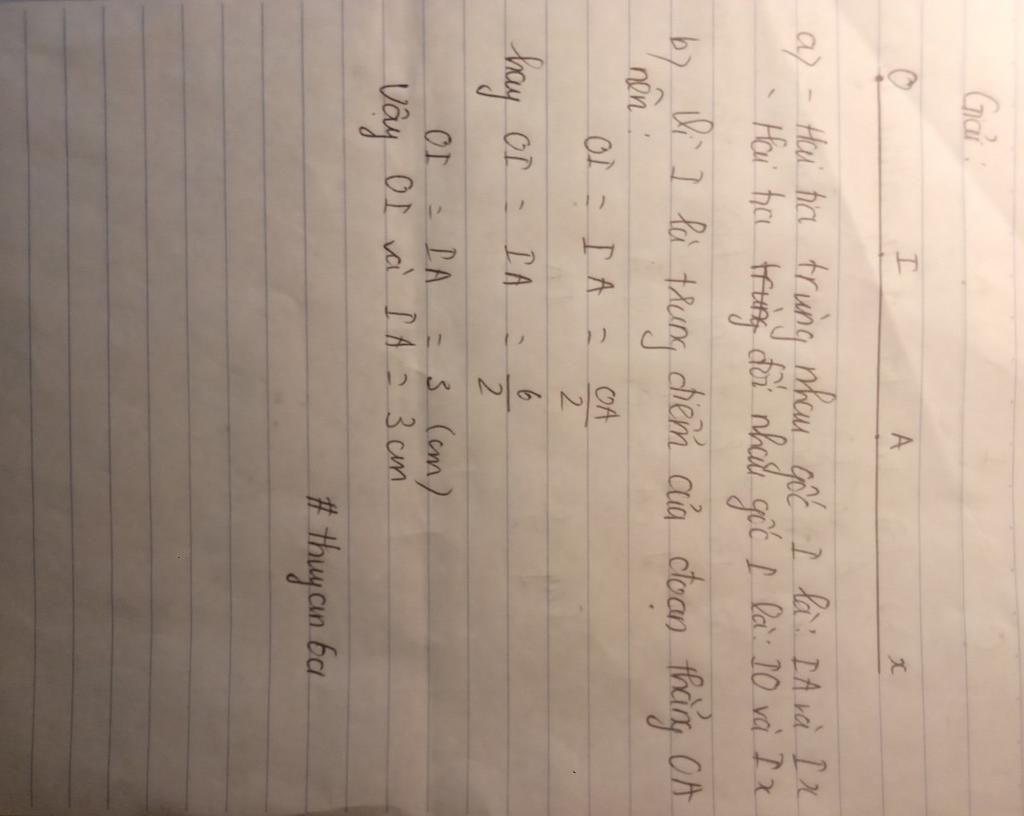 Giải:
O I A x
a) - Hai tia trùng nhau gốc I là: IA và Ix
- Hai tia trùng đối nhau gốc I là: IO và Ix
b) Vì I là trung điểm của đoạn thẳng OA
nên:
OI = IA = OA/2
hay OI = IA = 6/2
OI = IA = 3 (cm)
Vậy OI và IA = 3 cm
# thuyan6a